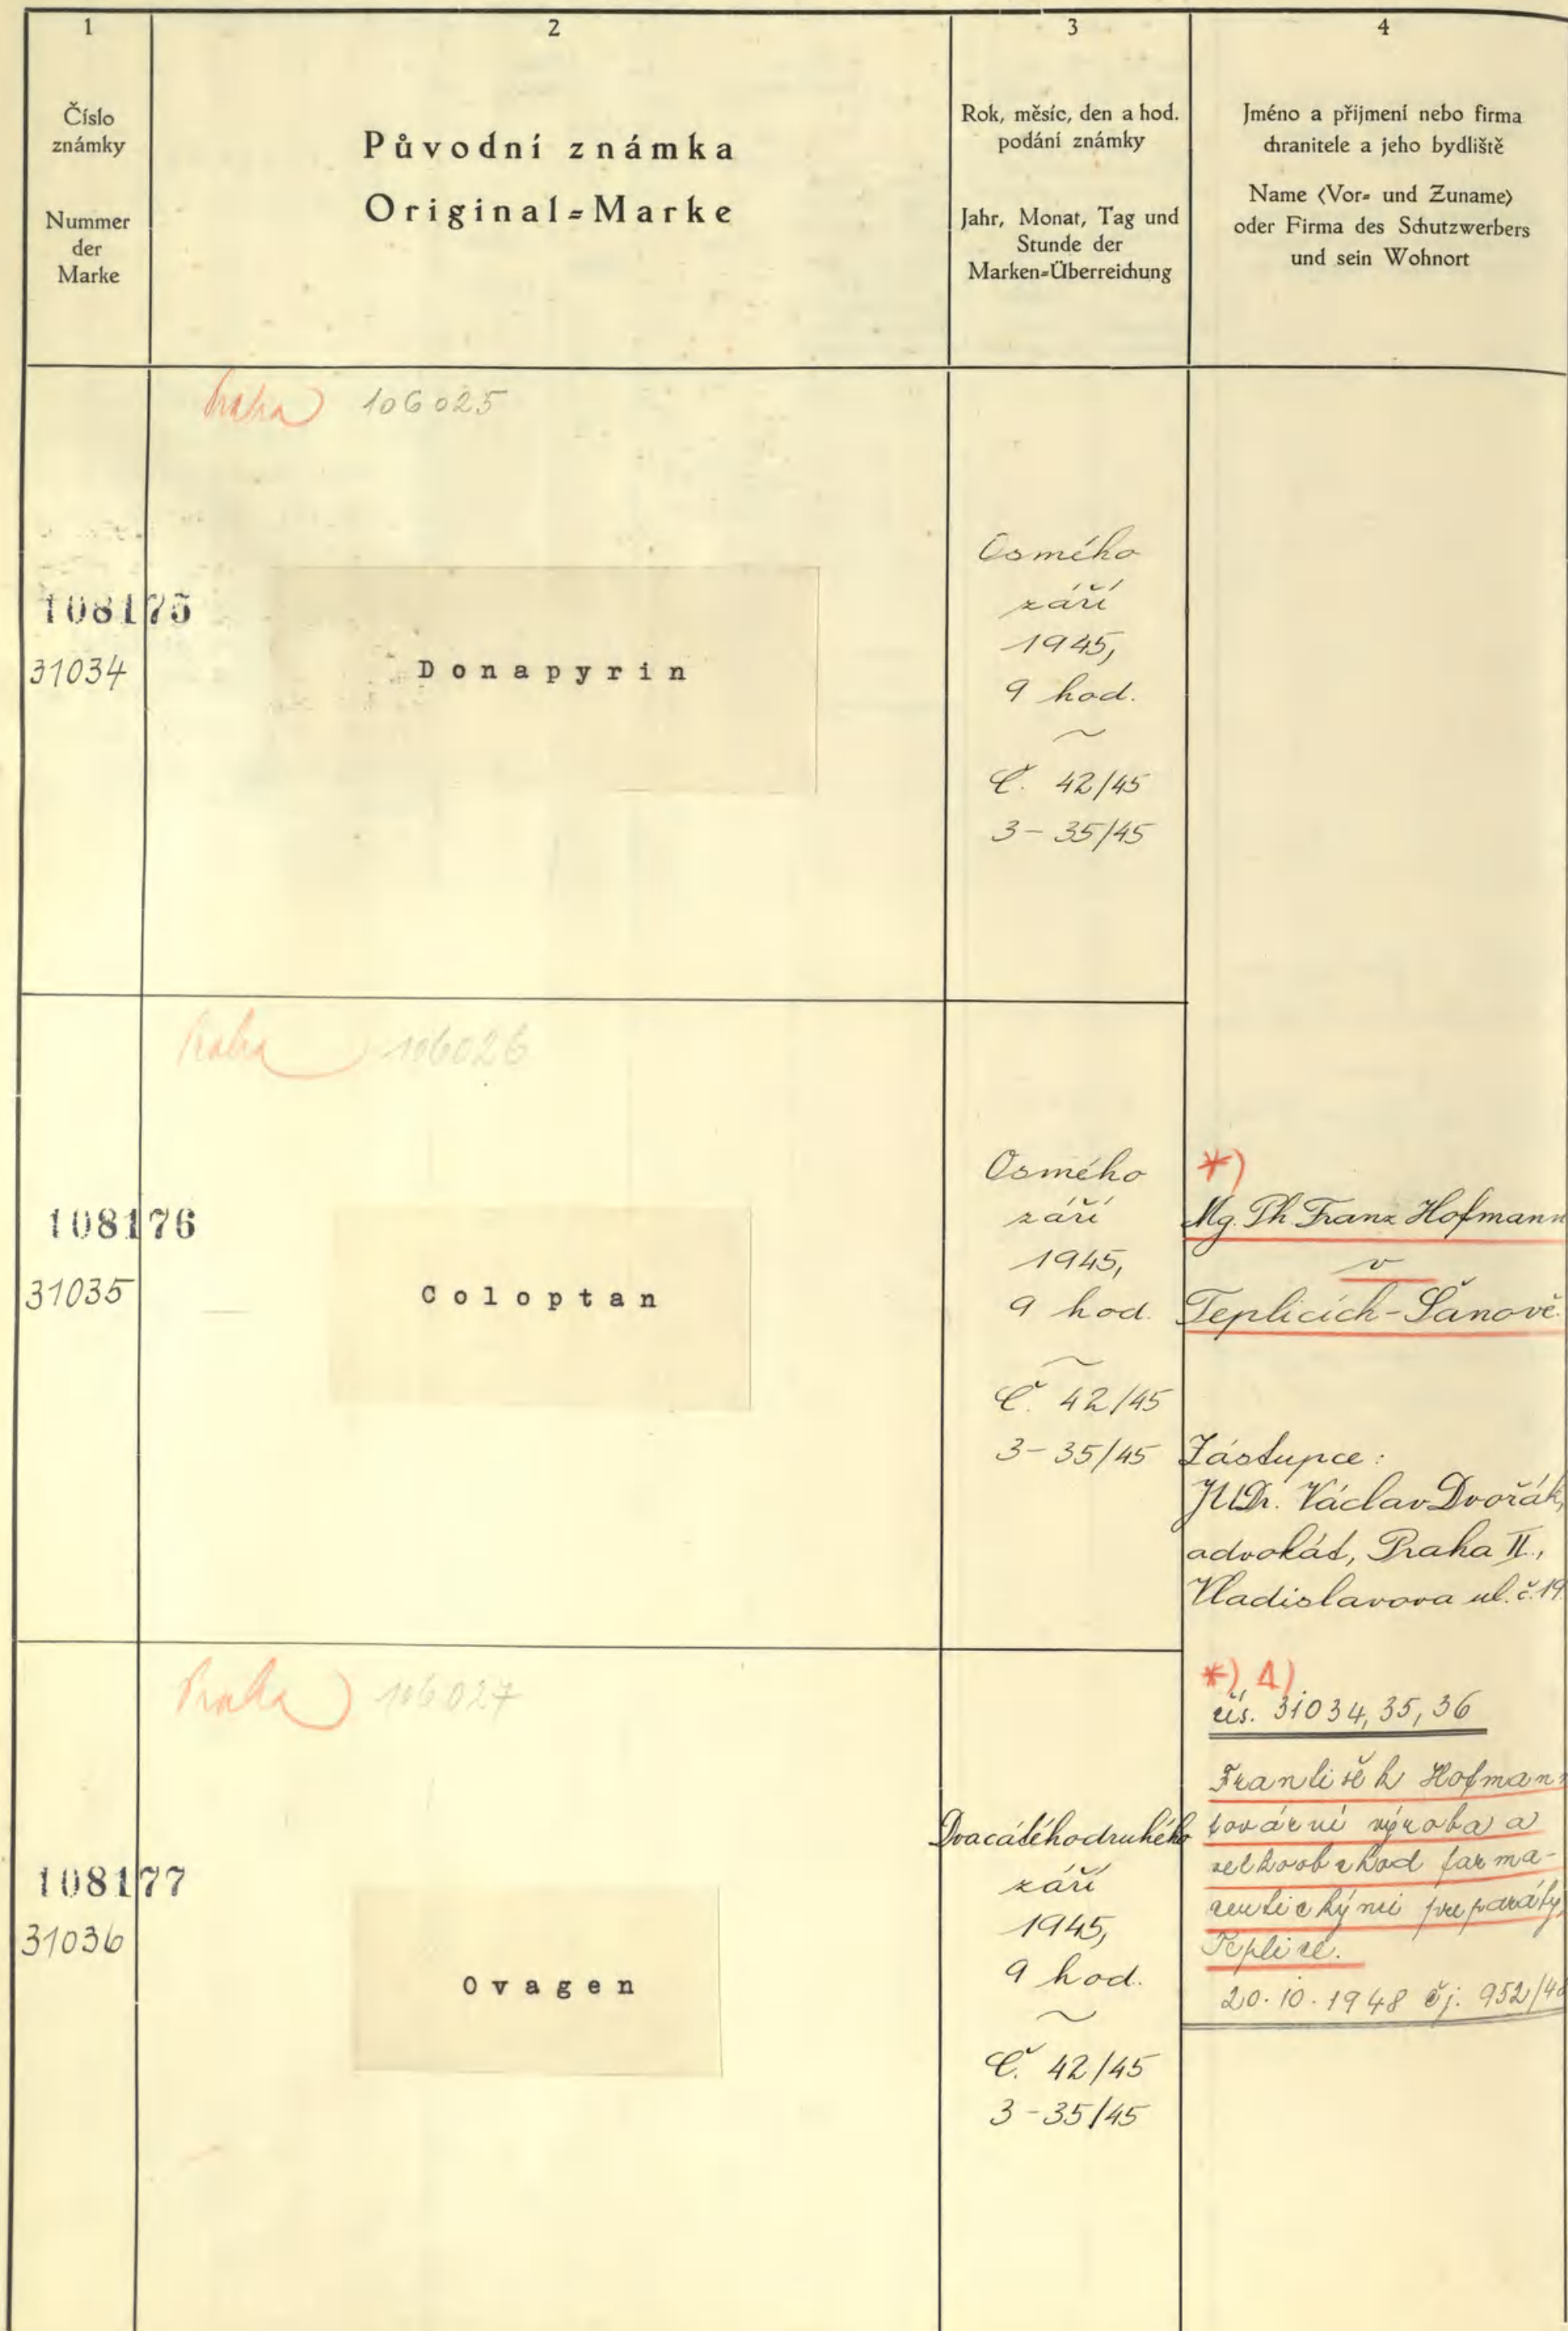 1
2
3
4
Číslo
známky
Nummer
der
Marke
Původní známka
Original=Marke
Rok, měsíc, den a hod.
podání známky
Jahr, Monat, Tag und
Stunde der
Marken=Überreichung
Jméno a přijmení nebo firma
chranitele a jeho bydliště
Name (Vor= und Zuname)
oder Firma des Schutzwerbers
und sein Wohnort
Praha 106025
108175
31034
Donapyrin
Osmého
září
1945,
9 hod.
~
Č. 42/45
3-35/45
Praha 106026
108176
31035
Coloptan
Osmého
září
1945,
9 hod.
~
Č. 42/45
3-35/45
*)
Mg. Ph. Franz Hofmann
v
Teplicích-Šanově.
Zástupce:
JUDr. Václav Dvořák,
advokát, Praha II.,
Vladislavova ul. č. 19
Praha 106027
108177
31036
Ovagen
Dvacátéhodruhého
září
1945,
9 hod.
~
Č. 42/45
3-35/45
*) Δ)
čís. 31034, 35, 36
František Hofmann
tovární výroba a
velkoobchod farma-
ceutickými preparáty,
Teplice.
20.10.1948 čj. 952/48